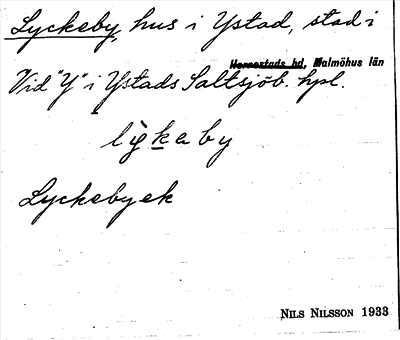 Lyckeby, hus i Ystad, stad i
Herrestads hd, Malmöhus län
Vid "Y" i Ystads Saltsjöb. hpl.
lỳkeby
Lyckebyek
NILS NILSSON 1933